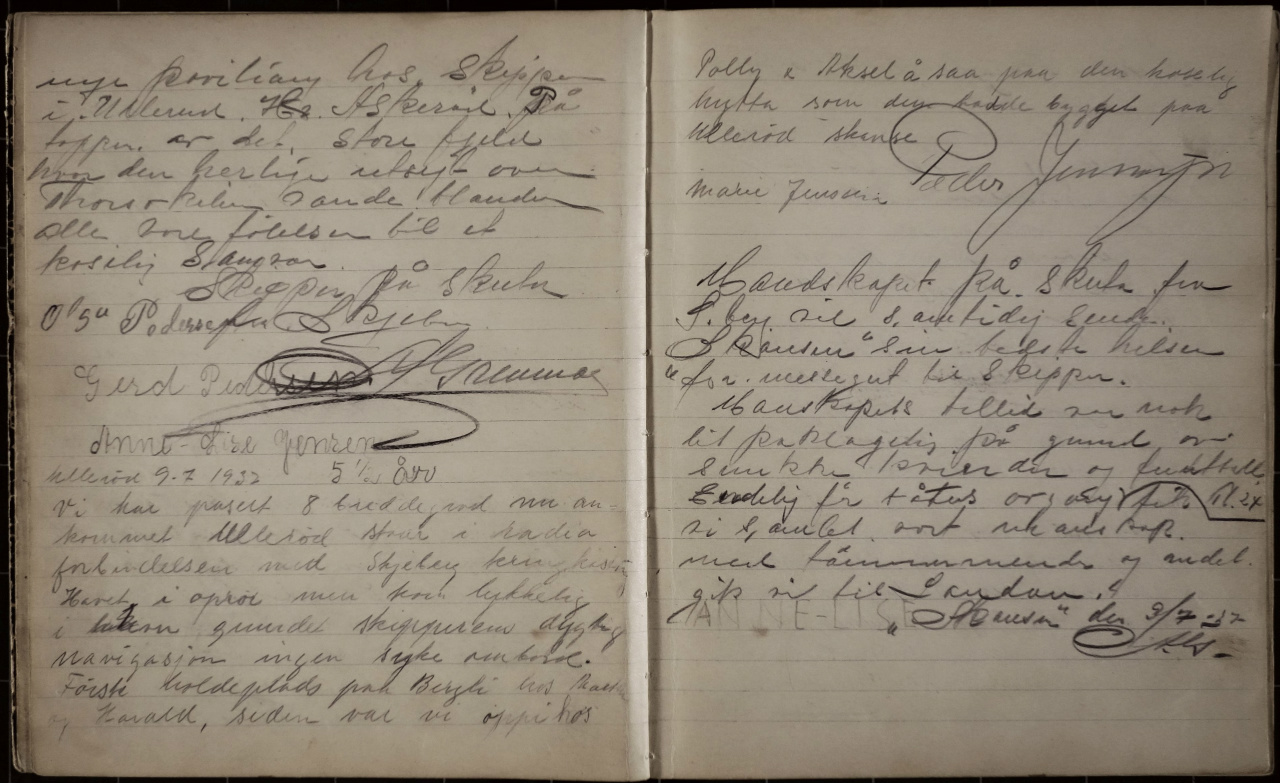 nye paviliong hos Skipper
i Ullerud. Hr. Askerød. På
toppen av det store fjeld
hvor den herlige utsigt over
Thorsekilen vande blander
alle vore følelser til et
koselig Samvær.
Skipper På Skuta
Pedersen Skjeberg
Gerd Pedersen
Anne-Lise Jensen
Ullerød 9-7 1937 5 1/2 År
Vi har pasert 8 breddegrad nu an-
kommet Ullerød staar i radio
forbindelsen med Skjeberg kringkasting
Havet i oprør men kom lykkelig
i havn grundet skipperens dygtig
navigasjon ingen syke ombord.
Første holdeplads paa Bergli hos
og Harald, siden var vi oppi hos
Polly & Aksel å saa paa den koselig
hytta som den hadde bygget paa
Ullerød skanse
Peder Jensen
Marie Jensen
Mandskapet på Skuta fra
S.berg vil samtidig sende
"Skansen" sin bedste hilsen
for. til Skipper.
Manskapets tillid var nok
lit paklagelig på grund av
smukke kvinder og
Endelig får fik Kl. 24
vi samlet vort manskap.
med tømmermænd og andet.
gik vi til Landun."
ANNE-LISE
"Skansen" den 9/7-37